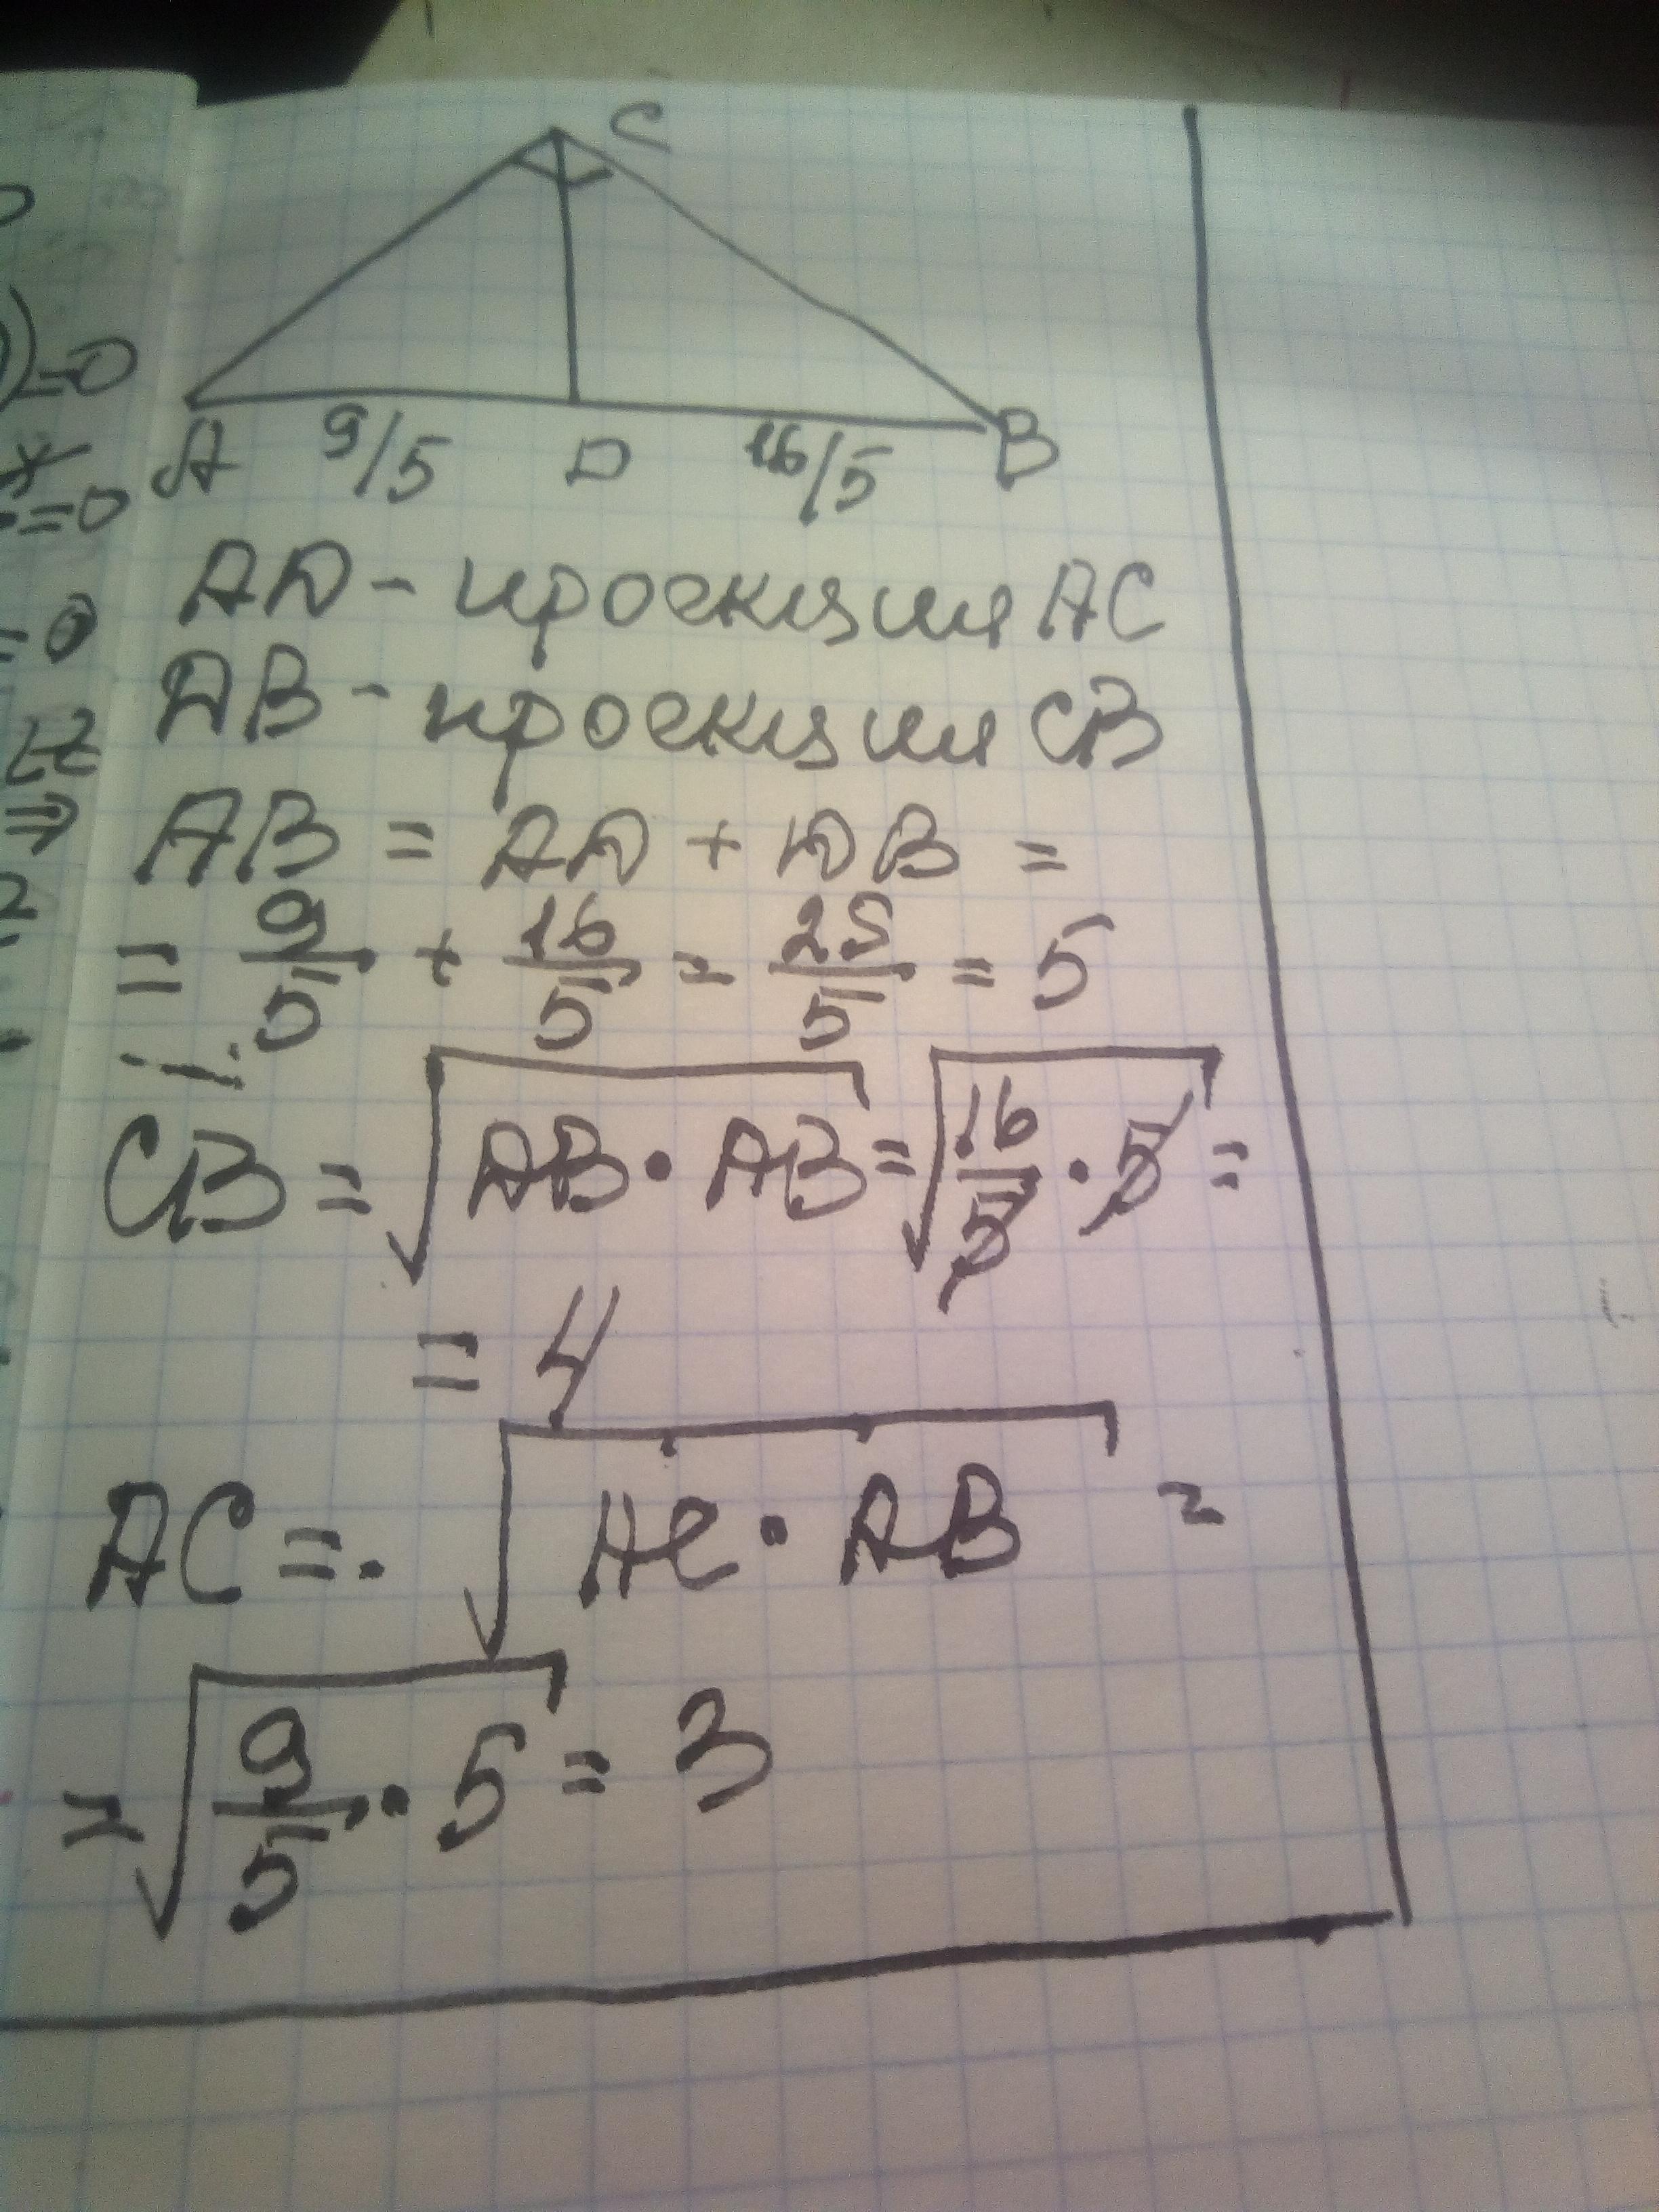 C
A 9/5 D 16/5 B
AD - проекция AC
DB - проекция CB
AB = AD + DB =
= 9/5 + 16/5 = 25/5 = 5
CB = √DB · AB = √16/5 · 5 =
= 4
AC = √AC · AB =
= √9/5 · 5 = 3
)=0
=0
=0
⇒
2